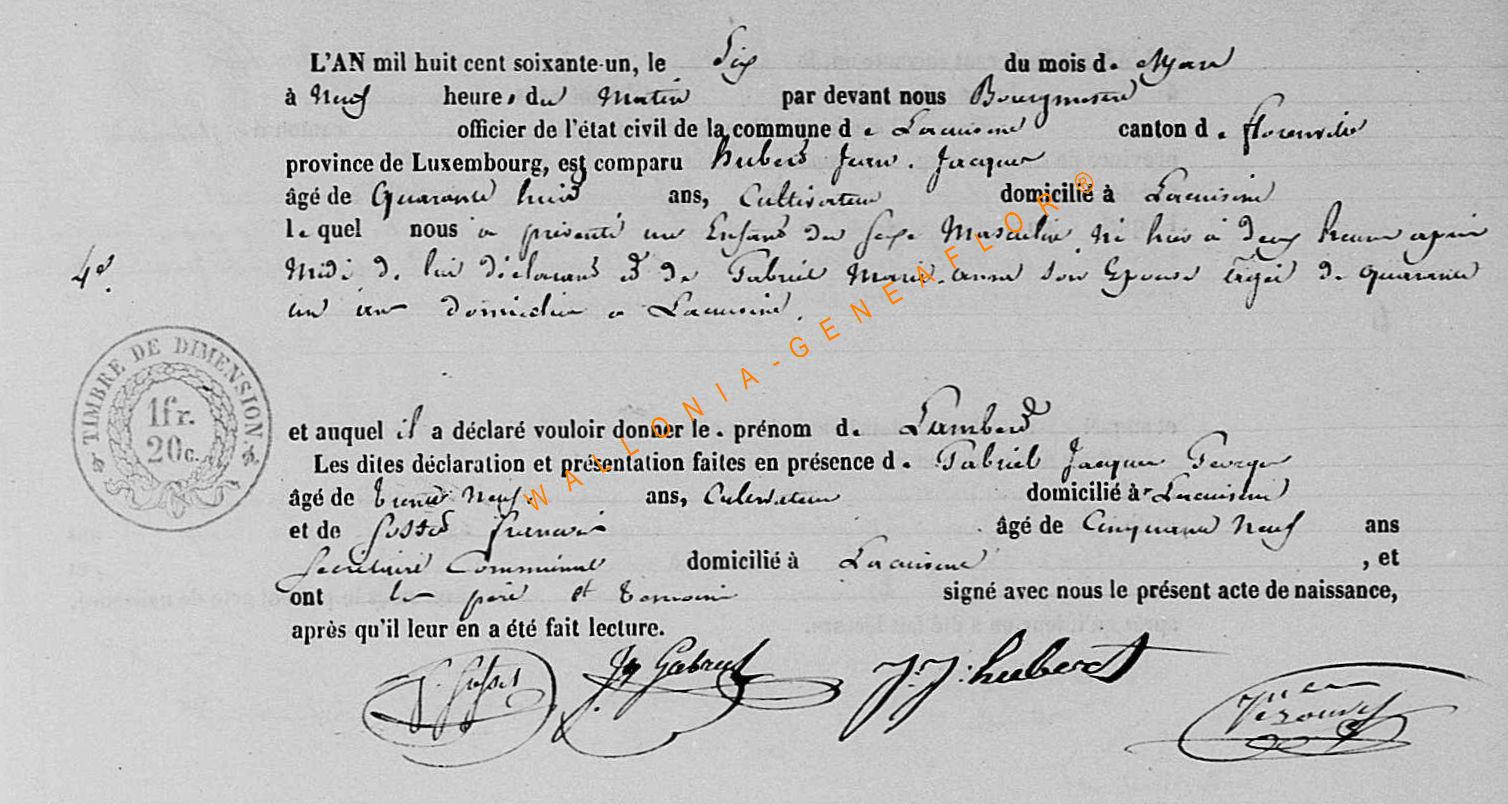 L'AN mil huit cent soixante-un, le Six du mois de Mars
à Neuf heures du Matin par devant nous Bourgmestre
officier de l'état civil de la commune de Lacuisine canton de florenville
province de Luxembourg, est comparu hubert Jean Jacques
âgé de Quarante huit ans, Cultivateur domicilié à Lacuisine
lequel nous a présenté un Enfant du Sexe Masculin, né hier à deux heures après
4e.
Midi de lui déclarant et de Gabriel Marie anne son Epouse âgée de quarante
un ans domiciliée à Lacuisine.
TIMBRE DE DIMENSION.
1fr.
20c.
et auquel il a déclaré vouloir donner le prénom de Lambert
Les dites déclaration et présentation faites en présence de Gabriel Jacques
âgé de trente Neuf ans, Cultivateur domicilié à Lacuisine
et de Gosset francois âgé de Cinquante Neuf ans
Secrétaire Communal domicilié à Lacuisine , et
ont les père et témoins signé avec nous le présent acte de naissance,
après qu'il leur en a été fait lecture.
f. Gosset Jq Gabriel J. J. hubert
WALLONIA-GENEAFLOR ®